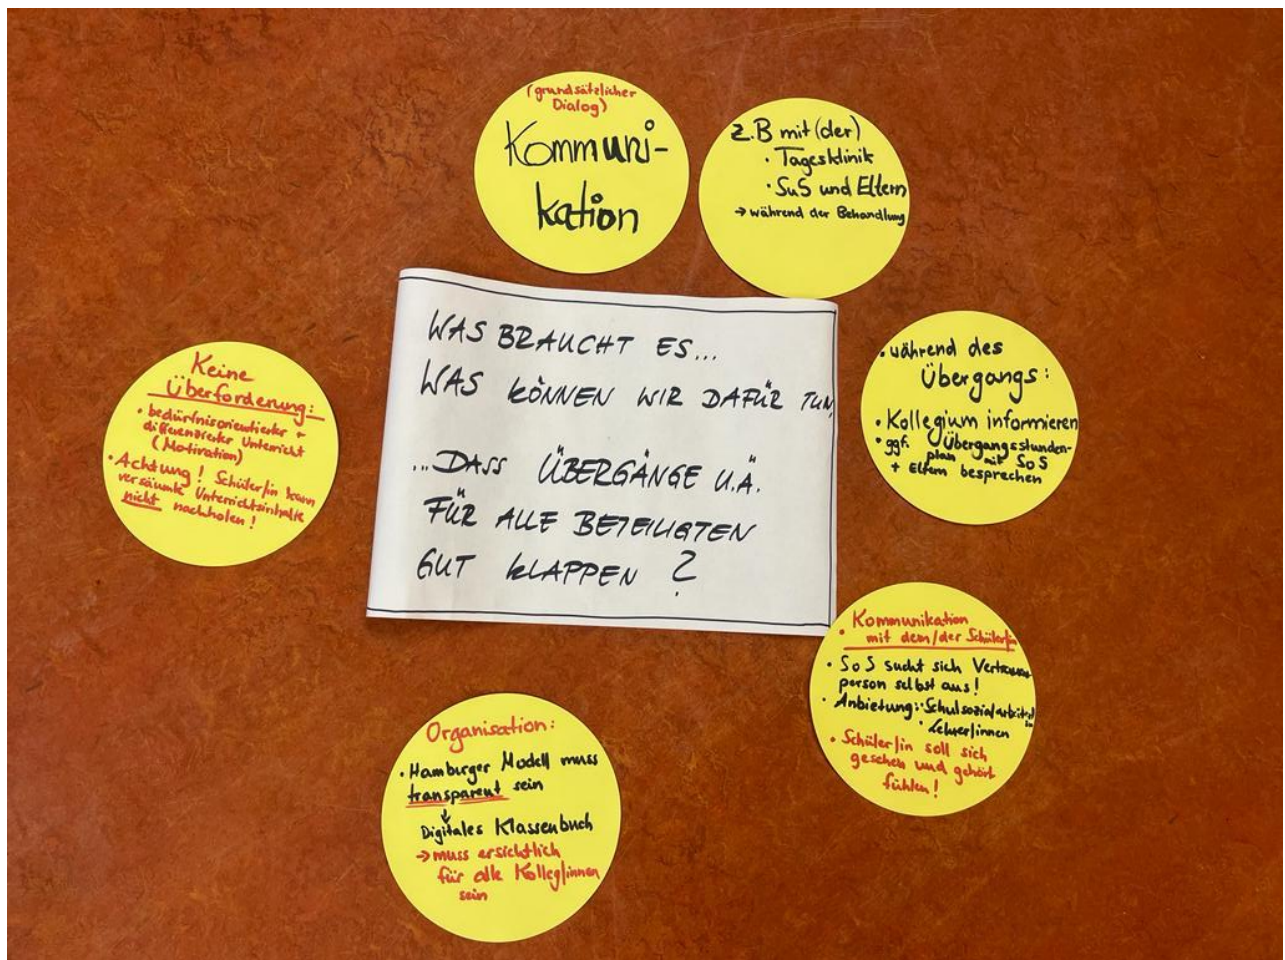 (grundsätzlicher
Dialog)
Kommuni-
kation
Z.B mit (der)
• Tagesklinik
• SuS und Eltern
→ während der Behandlung
WAS BRAUCHT ES...
WAS KÖNNEN WIR DAFÜR TUN,
...DASS ÜBERGÄNGE U.Ä.
FÜR ALLE BETEILIGTEN
GUT KLAPPEN ?
• während des
Übergangs:
• Kollegium informieren
• ggf. Übergangsstunden-
plan mit SoS
+ Eltern besprechen
Keine
Überforderung:
• bedürfnisorientierter +
differenzierter Unterricht
(Motivation)
• Achtung! Schüler/in kann
versäumte Unterrichtsinhalte
nicht nachholen!
• Kommunikation
mit dem/der Schüler/in
• SoS sucht sich Vertrauens-
person selbst aus!
• Anbietung: • Schulsozialarbeiter/in
• Lehrer/innen
• Schüler/in soll sich
gesehen und gehört
fühlen!
Organisation:
• Hamburger Modell muss
transparent sein
↓
Digitales Klassenbuch
→ muss ersichtlich
für alle Kolleg/innen
sein